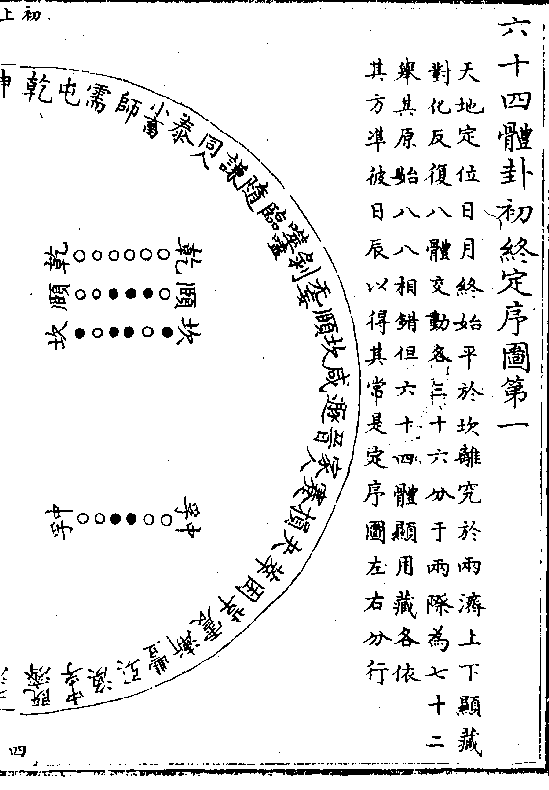 六十四體卦初終定序圖第一
天地定位日月終始平於坎離究於兩濟上下顯藏
對化反復八體交動各三十六分于兩際為七十二
舉其原始八八相錯但六十四體顯用藏各依
其方準彼日辰以得其常是定序圖左右分行
初上
乾屯需師小畜泰同人謙隨臨噬嗑剝无妄頤坎咸遯晉家人蹇損夬萃困革震漸豐巽渙中孚既濟
乾 乾
頤 頤
坎 坎
中孚 中孚
四